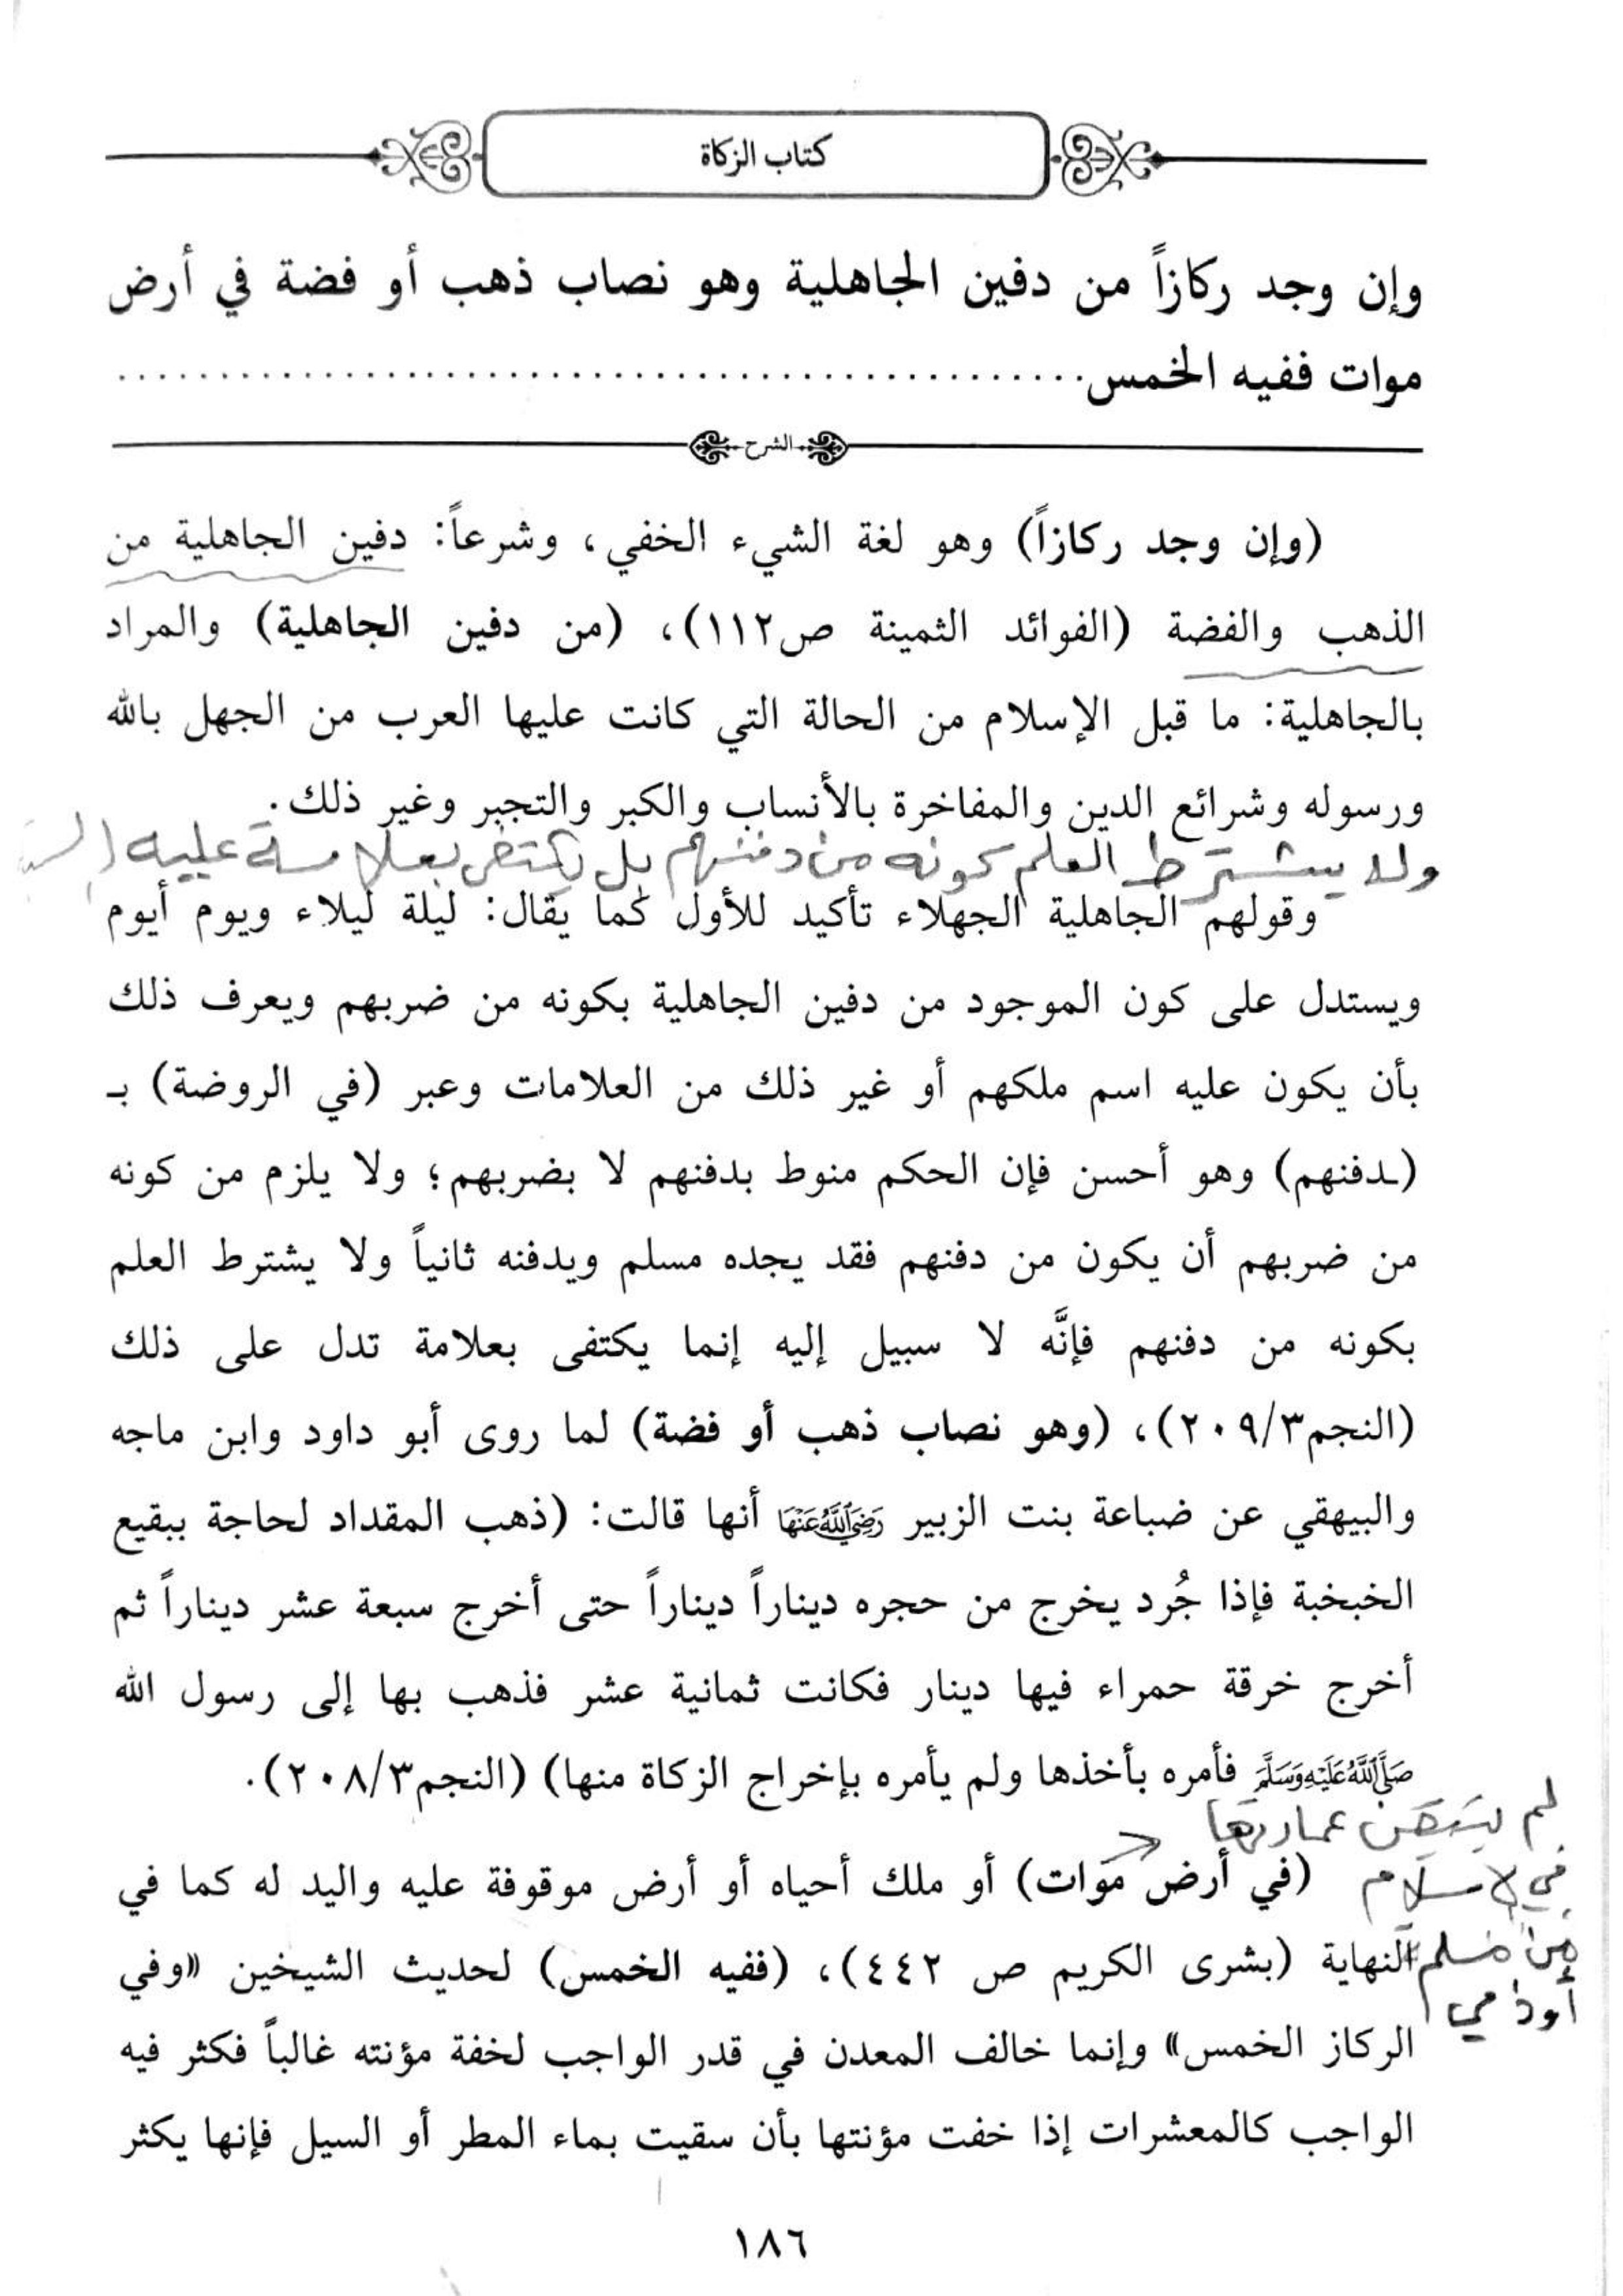 كتاب الزكاة
وإن وجد ركازاً من دفين الجاهلية وهو نصاب ذهب أو فضة في أرض
موات ففيه الخمس................................................
الشرح
(وإن وجد ركازاً) وهو لغة الشيء الخفي، وشرعاً: دفين الجاهلية من
الذهب والفضة (الفوائد الثمينة ص١١٢)، (من دفين الجاهلية) والمراد
بالجاهلية: ما قبل الإسلام من الحالة التي كانت عليها العرب من الجهل بالله
ورسوله وشرائع الدين والمفاخرة بالأنساب والكبر والتجبر وغير ذلك.
ولا يشترط العلم كونه من دفنهم بل يكتفى بعلامة عليه
وقولهم الجاهلية الجهلاء تأكيد للأول كما يقال: ليلة ليلاء ويوم أيوم
ويستدل على كون الموجود من دفين الجاهلية بكونه من ضربهم ويعرف ذلك
بأن يكون عليه اسم ملكهم أو غير ذلك من العلامات وعبر (في الروضة) بـ
(ـدفنهم) وهو أحسن فإن الحكم منوط بدفنهم لا بضربهم؛ ولا يلزم من كونه
من ضربهم أن يكون من دفنهم فقد يجده مسلم ويدفنه ثانياً ولا يشترط العلم
بكونه من دفنهم فإنَّه لا سبيل إليه إنما يكتفى بعلامة تدل على ذلك
(النجم٢٠٩/٣)، (وهو نصاب ذهب أو فضة) لما روى أبو داود وابن ماجه
والبيهقي عن ضباعة بنت الزبير رَضِيَ اللَّهُ عَنْهَا أنها قالت: (ذهب المقداد لحاجة ببقيع
الخبخبة فإذا جُرد يخرج من حجره ديناراً ديناراً حتى أخرج سبعة عشر ديناراً ثم
أخرج خرقة حمراء فيها دينار فكانت ثمانية عشر فذهب بها إلى رسول الله
صَلَّى اللَّهُ عَلَيْهِ وَسَلَّمَ فأمره بأخذها ولم يأمره بإخراج الزكاة منها) (النجم٢٠٨/٣).
لم يتيقن عمارتها
في الإسلام
من مسلم
أو ذمي
(في أرض موات) أو ملك أحياه أو أرض موقوفة عليه واليد له كما في
النهاية (بشرى الكريم ص ٤٤٢)، (ففيه الخمس) لحديث الشيخين «وفي
الركاز الخمس» وإنما خالف المعدن في قدر الواجب لخفة مؤنته غالباً فكثر فيه
الواجب كالمعشرات إذا خفت مؤنتها بأن سقيت بماء المطر أو السيل فإنها يكثر
١٨٦